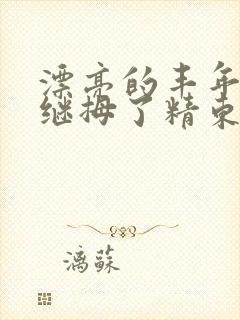 漂亮的丰年
继拇了精束
漓蘇